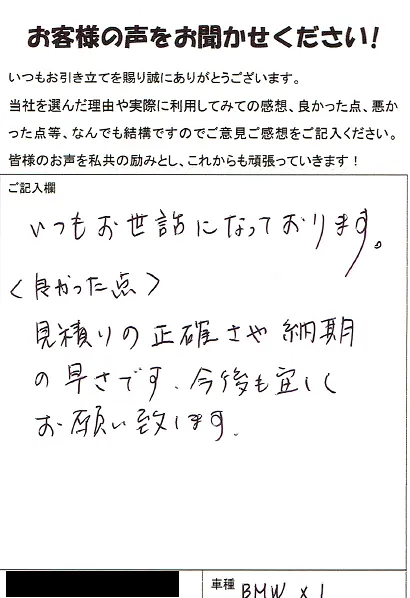 お客様の声をお聞かせください！
いつもお引き立てを賜り誠にありがとうございます。
当社を選んだ理由や実際に利用してみての感想、良かった点、悪か
った点等、なんでも結構ですのでご意見ご感想をご記入ください。
皆様のお声を私共の励みとし、これからも頑張っていきます！
ご記入欄
いつもお世話になっております。
〈良かった点〉
見積りの正確さや納期
の早さです、今後も宜しく
お願い致します。
車種 BMW X1